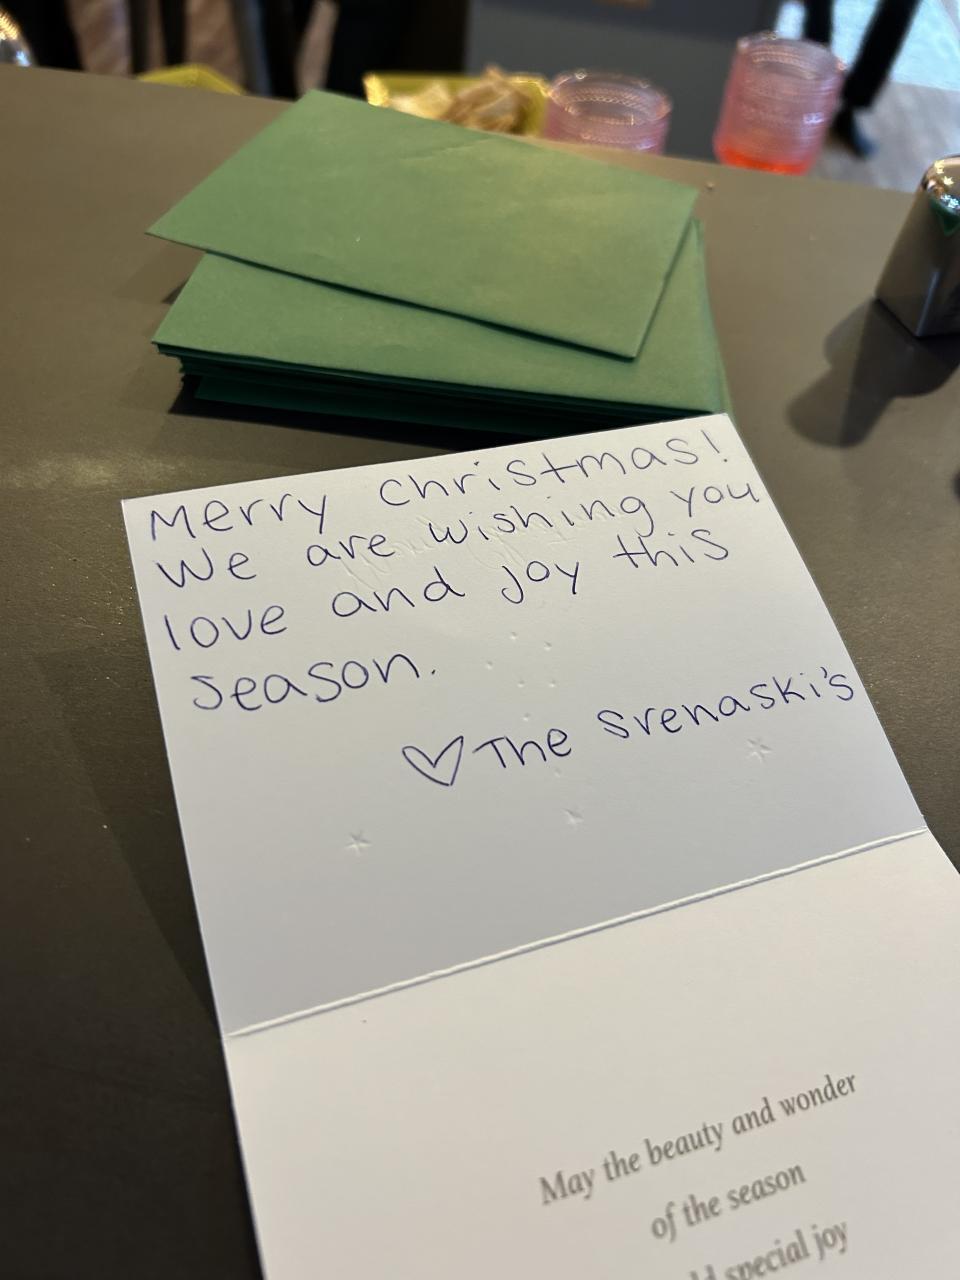 Merry Christmas!
We are wishing you
love and joy this
season.
♡ The Srenaski's
May the beauty and wonder
of the season
special joy